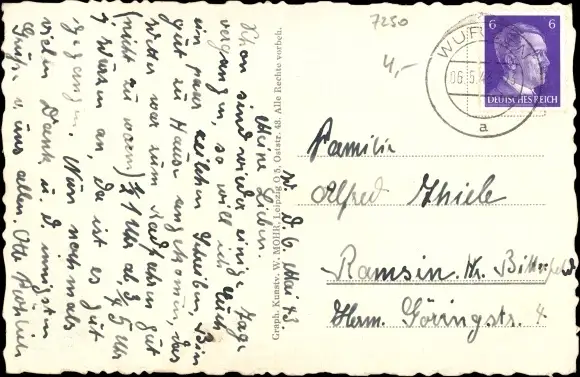 W. D. 6. Mai 43.
Meine Lieben.
Schon sind wieder einige Tage
vergangen, so will ich Euch
ein paar Zeilchen schreiben. Bin
gut zu Hause angekommen, das
Wetter war zum Radfahren gut
(nicht zu warm) ½ 1 Uhr ab, ¾ 5 Uhr
waren an, Da ist es gut
gegangen. Nun nochmals
vielen Dank u. d innigsten
Grüße v. uns allen Otto Fröhlich
Graph. Kunstv. W. MOHR, Leipzig O 5, Oststr. 48. Alle Rechte vorbeh.
7250
4,-
WURZEN
06.5.43
a
6 6
DEUTSCHES REICH
Familie
Alfred Thiele
Ramsin. Kr. Bitterfeld
Herm. Göringstr. 4.